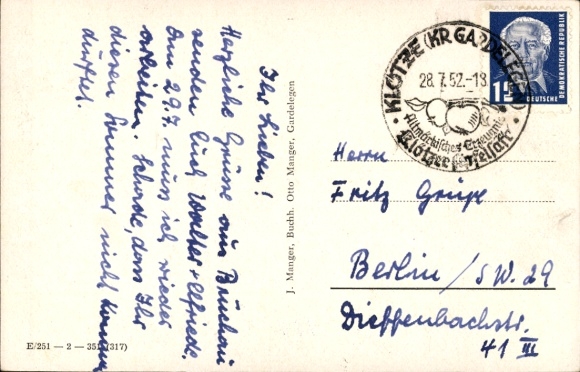 Ihr Lieben!
Herzliche Grüße aus Breitenau
senden Euch Walter + Elfriede.
Am 29.7. muss ich wieder
arbeiten. Schade, dass Ihr
diesen Sommer nicht kommen
durftet.
J. Manger, Buchh. Otto Manger, Gardelegen
E/251 — 2 — 351 (317)
KLÖTZE (KR GARDELEGEN)
28.7.52.-18
Altmärkisches Erzeugnis
Klötzer Obstsäfte
15
DEUTSCHE
DEMOKRATISCHE REPUBLIK
Herrn
Fritz Grupe
Berlin / SW. 29
Dieffenbachstr.
41 III